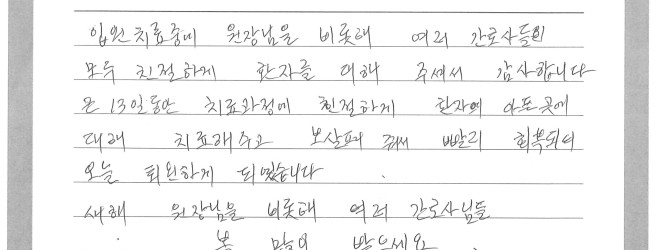 입원치료중에 원장님을 비롯해 여러 간호사들이
모두 친절하게 환자를 대해 주셔서 감사합니다
온 13일동안 치료과정에 친절하게 환자의 아픈곳에
대해 치료해주고 보살펴 줘서 빨리 회복되어
오늘 퇴원하게 되였습니다.
새해 원장님을 비롯해 여러 간호사님들
복 많이 받으세요